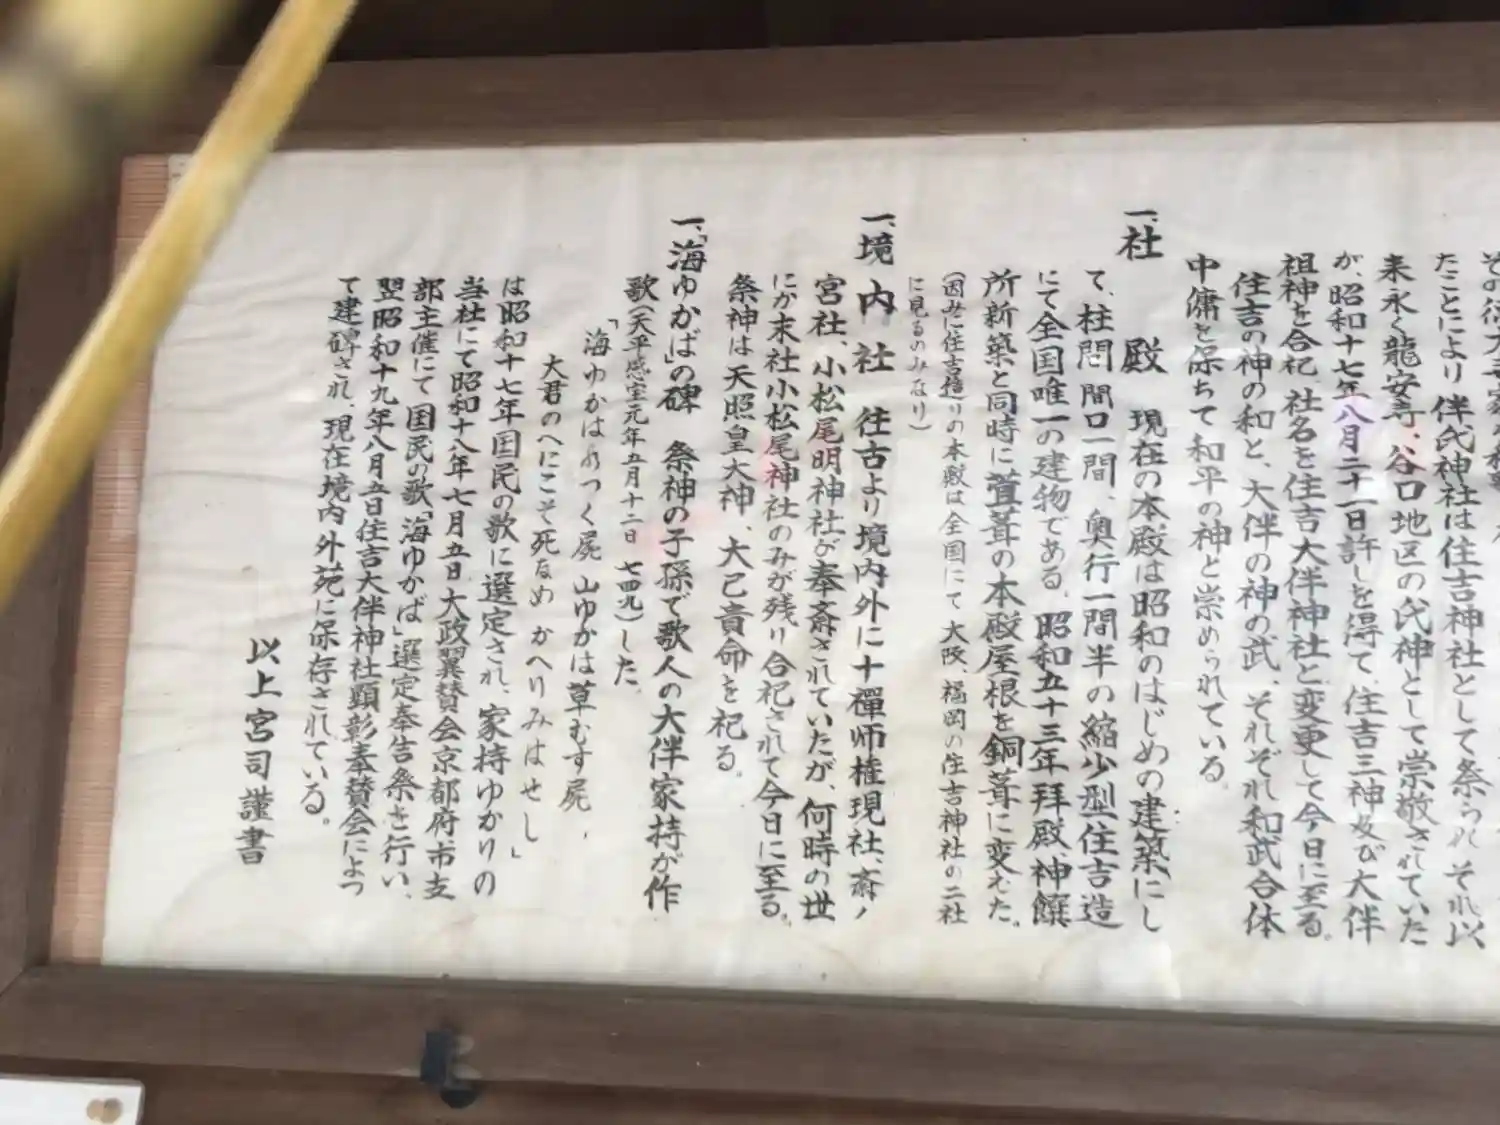 たことにより伴氏神社は住吉神社として祭られ、それ以
来永く龍安寺、谷口地区の氏神として崇敬されていた
が、昭和十七年八月二十一日許しを得て、住吉三神及び大伴
祖神を合祀、社名を住吉大伴神社と変更して今日に至る。
住吉の神の和と、大伴の神の武、それぞれ和武合体
中庸を保ちて和平の神と崇められている。
一、社殿 現在の本殿は昭和のはじめの建築にし
て、柱間、間口一間、奥行一間半の縮少型住吉造
にて全国唯一の建物である。昭和五十三年拝殿、神饌
所新築と同時に萓葺の本殿屋根を銅葺に変えた。
(因みに住吉造りの本殿は全国にて大阪、福岡の住吉神社の二社
に見るのみなり)
一、境内社 往古より境内外に十禪师権現社、斎ノ
宮社、小松尾明神社が奉斎されていたが、何時の世
にか末社小松尾神社のみが残り合祀されて今日に至る。
祭神は天照皇大神、大己貴命を祀る。
一、「海ゆかば」の碑 祭神の子孫で歌人の大伴家持が作
歌(天平感宝元年五月十二日 七四九)した
「海ゆかはみつく屍 山ゆかは草むす屍、
大君のへにこそ死なめ かへりみはせし」
は昭和十七年国民の歌に選定され、家持ゆかりの
当社にて昭和十八年七月五日、大政翼賛会京都府市支
部主催にて国民の歌「海ゆかば」選定奉告祭を行い、
翌昭和十九年八月五日住吉大伴神社顕彰奉賛会によつ
て建碑され、現在境内外苑に保存されている。
以上宮司謹書